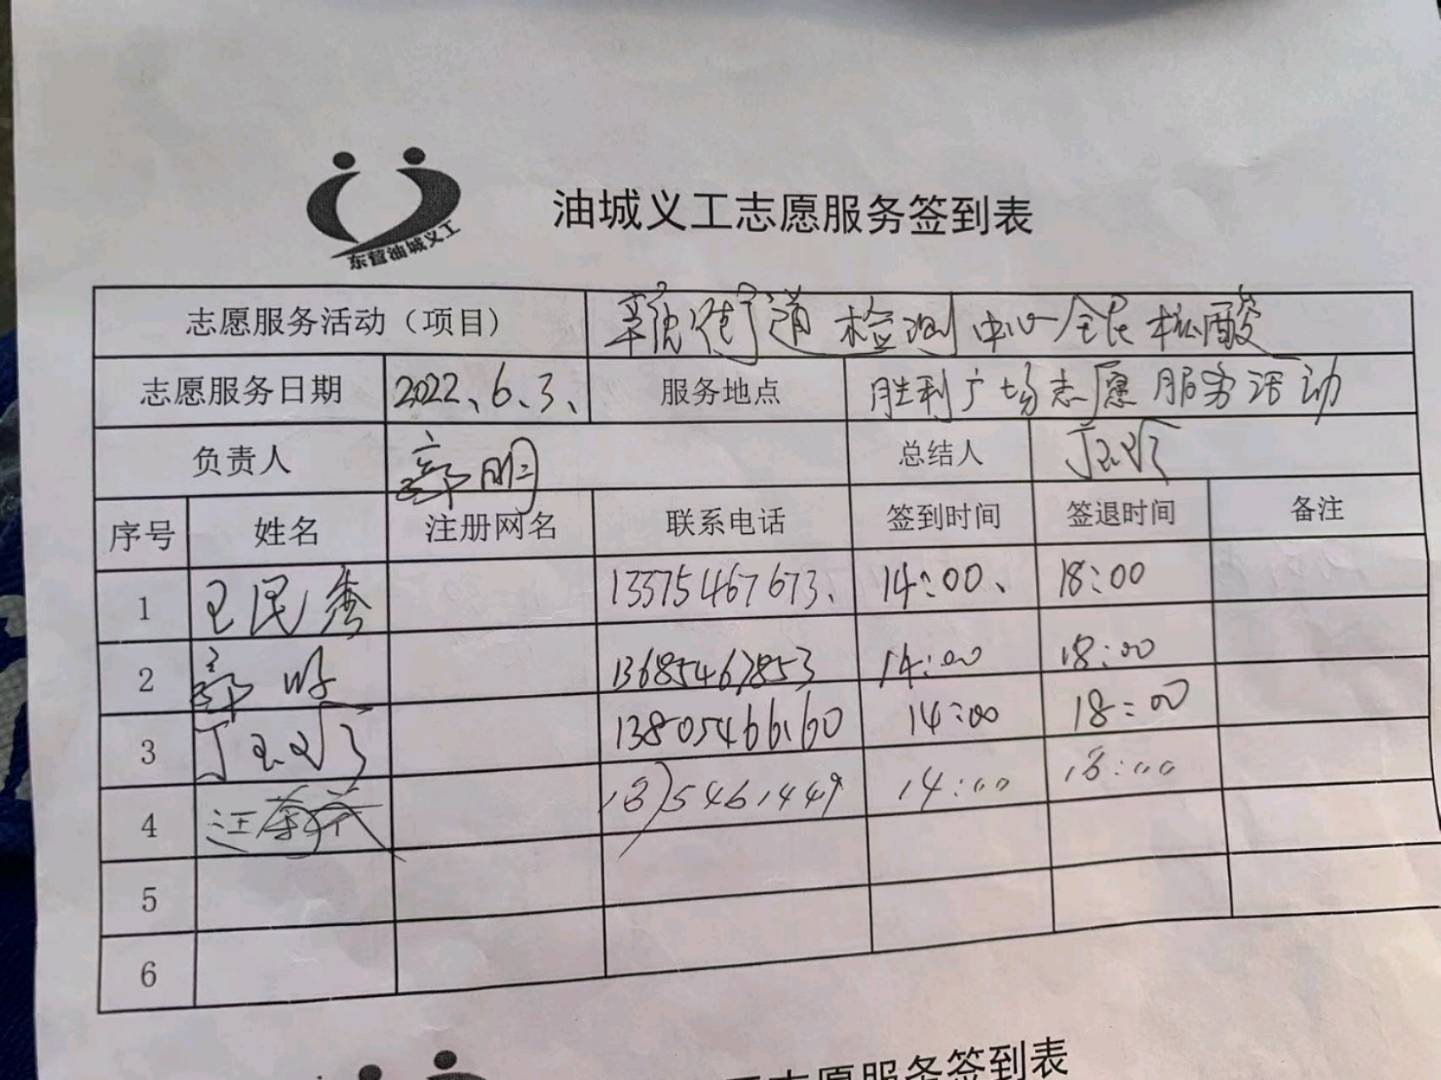 东营油城义工
油城义工志愿服务签到表
志愿服务活动（项目） 街道检测中心全民核酸
志愿服务日期 2022、6、3、 服务地点 胜利广场志愿服务活动
负责人 郭明 总结人
序号 姓名 注册网名 联系电话 签到时间 签退时间 备注
1 王民秀 13375467673、 14:00、 18:00
2 郭明 13685467853 14:00 18:00
3 13805466160 14:00 18:00
4 汪 14:00 18:00
5
6
志愿服务签到表